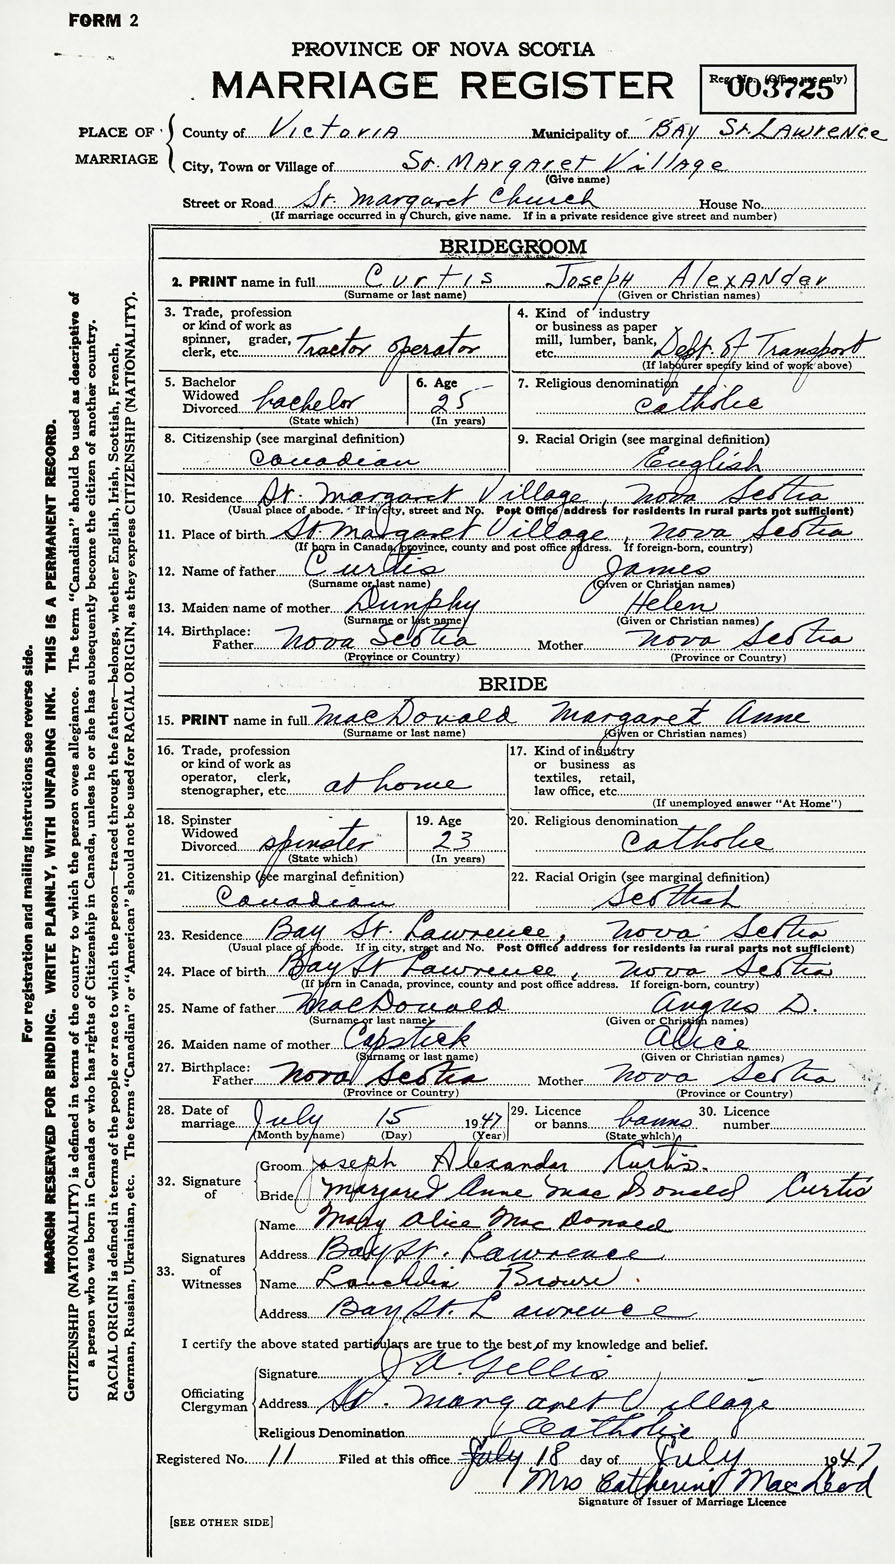 FORM 2
PROVINCE OF NOVA SCOTIA
MARRIAGE REGISTER
Reg. No. (Office use only)
003725
PLACE OF MARRIAGE
County of Victoria Municipality of Bay St. Lawrence
City, Town or Village of St. Margaret Village
(Give name)
Street or Road St. Margaret Church House No.
(If marriage occurred in a Church, give name. If in a private residence give street and number)
BRIDEGROOM
2. PRINT name in full Curtis Joseph Alexander
(Surname or last name) (Given or Christian names)
3. Trade, profession or kind of work as spinner, grader, clerk, etc. Tractor operator
4. Kind of industry or business as paper mill, lumber, bank, etc. Dept. of Transport
(If labourer specify kind of work above)
5. Bachelor Widowed Divorced bachelor
(State which)
6. Age 25
(In years)
7. Religious denomination Catholic
8. Citizenship (see marginal definition) Canadian
9. Racial Origin (see marginal definition) English
10. Residence St. Margaret Village, Nova Scotia
(Usual place of abode. If in city, street and No. Post Office address for residents in rural parts not sufficient)
11. Place of birth St. Margaret Village, Nova Scotia
(If born in Canada, province, county and post office address. If foreign-born, country)
12. Name of father Curtis James
(Surname or last name) (Given or Christian names)
13. Maiden name of mother Dunphy Helen
(Surname or last name) (Given or Christian names)
14. Birthplace: Father Nova Scotia Mother Nova Scotia
(Province or Country) (Province or Country)
BRIDE
15. PRINT name in full MacDonald Margaret Anne
(Surname or last name) (Given or Christian names)
16. Trade, profession or kind of work as operator, clerk, stenographer, etc. at home
17. Kind of industry or business as textiles, retail, law office, etc.
(If unemployed answer "At Home")
18. Spinster Widowed Divorced spinster
(State which)
19. Age 23
(In years)
20. Religious denomination Catholic
21. Citizenship (see marginal definition) Canadian
22. Racial Origin (see marginal definition) Scottish
23. Residence Bay St. Lawrence, Nova Scotia
(Usual place of abode. If in city, street and No. Post Office address for residents in rural parts not sufficient)
24. Place of birth Bay St Lawrence, Nova Scotia
(If born in Canada, province, county and post office address. If foreign-born, country)
25. Name of father MacDonald Angus D.
(Surname or last name) (Given or Christian names)
26. Maiden name of mother Capstick Alice
(Surname or last name) (Given or Christian names)
27. Birthplace: Father Nova Scotia Mother Nova Scotia
(Province or Country) (Province or Country)
28. Date of marriage July 15 1947
(Month by name) (Day) (Year)
29. Licence or banns banns
(State which)
30. Licence number
32. Signature of
Groom Joseph Alexander Curtis.
Bride Margaret Anne MacDonald Curtis
33. Signatures of Witnesses
Name Mary Alice MacDonald
Address Bay St. Lawrence
Name Lauchlin Brown
Address Bay St. Lawrence
I certify the above stated particulars are true to the best of my knowledge and belief.
Officiating Clergyman
Signature J A. Gillis
Address St. Margaret Village
Religious Denomination Catholic
Registered No. 11 Filed at this office July 18 day of July 1947
Mrs Catherine MacLeod
Signature of Issuer of Marriage Licence
[SEE OTHER SIDE]
For registration and mailing instructions see reverse side.
MARGIN RESERVED FOR BINDING. WRITE PLAINLY, WITH UNFADING INK. THIS IS A PERMANENT RECORD.
CITIZENSHIP (NATIONALITY) is defined in terms of the country to which the person owes allegiance. The term "Canadian" should be used as descriptive of
a person who was born in Canada or who has rights of Citizenship in Canada, unless he or she has subsequently become the citizen of another country.
RACIAL ORIGIN is defined in terms of the people or race to which the person—traced through the father—belongs, whether English, Irish, Scottish, French,
German, Russian, Ukrainian, etc. The terms "Canadian" or "American" should not be used for RACIAL ORIGIN, as they express CITIZENSHIP (NATIONALITY).